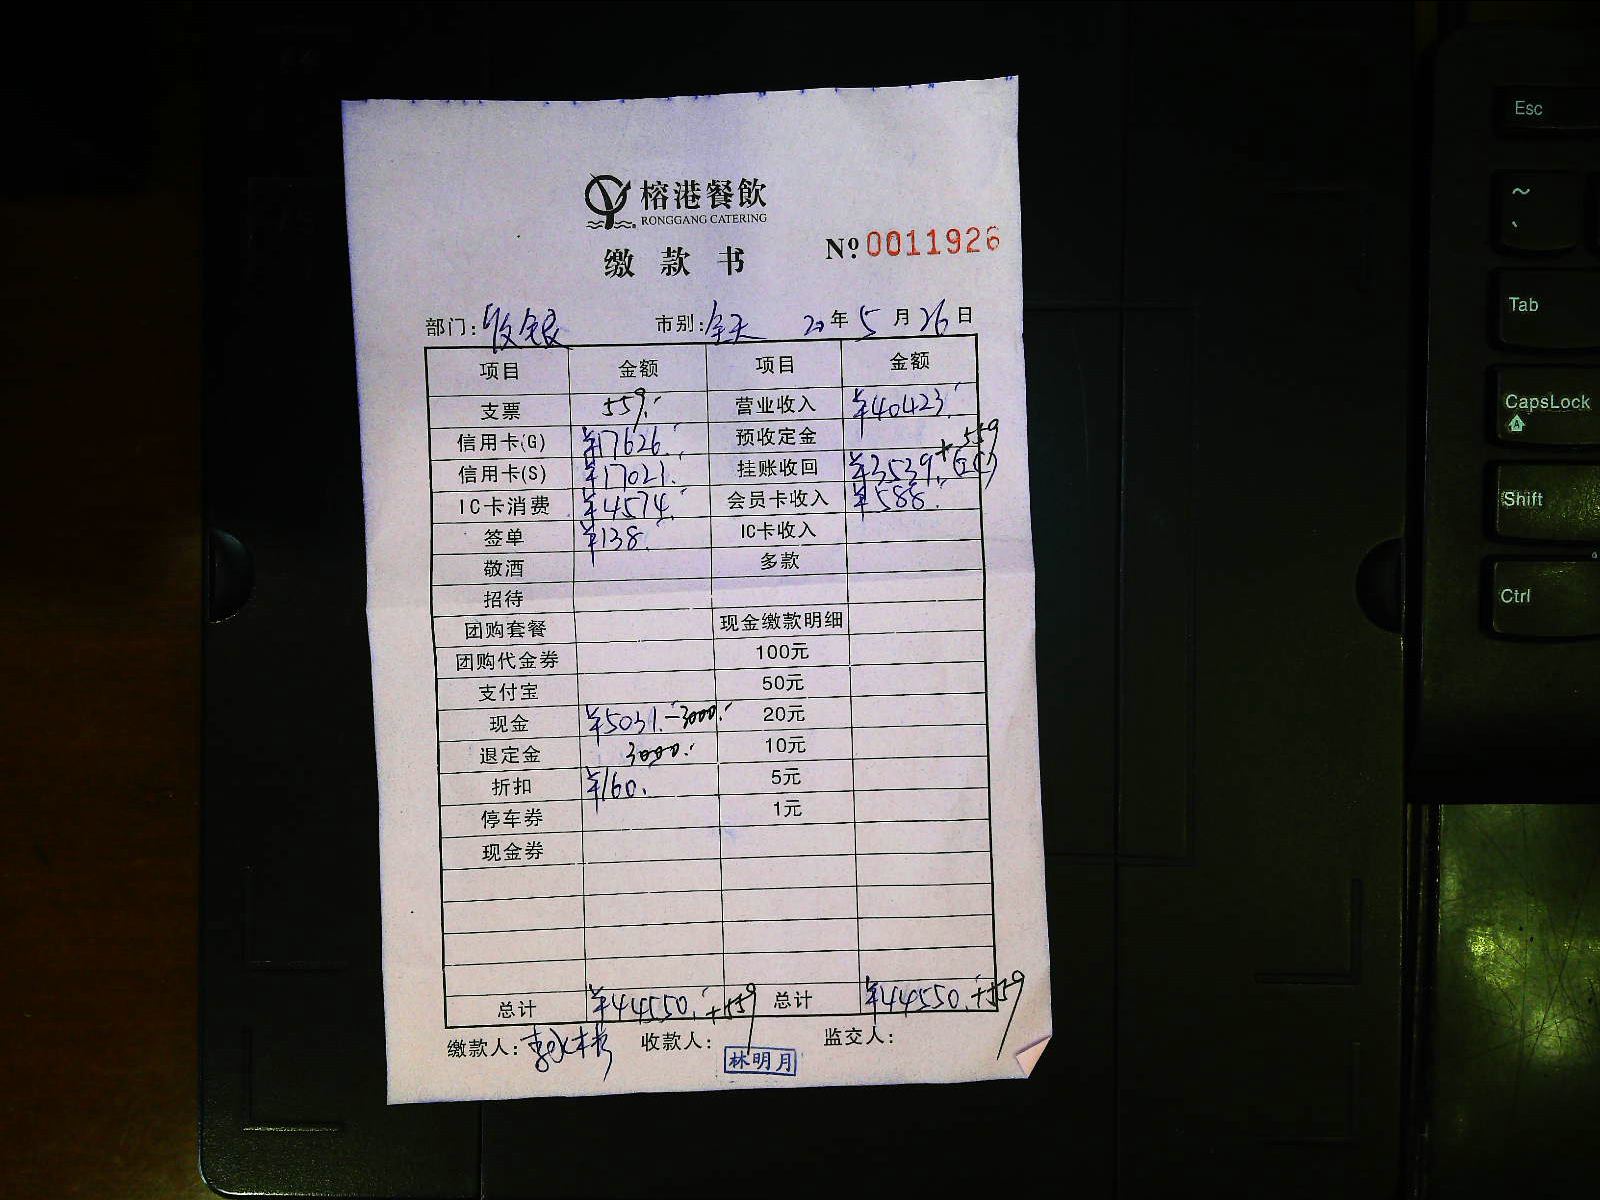 榕港餐飲
RONGGANG CATERING
缴款书
Nº 0011926
部门: 收银 市别: 全天 20年5月26日
项目 金额 项目 金额
支票 559. 营业收入 ¥40423.
信用卡(G) ¥17626. 预收定金
信用卡(S) ¥17021. 挂账收回 ¥3539. +559
IC卡消费 ¥4574. 会员卡收入 ¥588.
签单 ¥138. IC卡收入
敬酒 多款
招待
团购套餐 现金缴款明细
团购代金券 100元
支付宝 50元
现金 ¥5031.-3000. 20元
退定金 3000. 10元
折扣 ¥160. 5元
停车券 1元
现金券
总计 ¥44550.+559 总计 ¥44550.+559
缴款人: 收款人: 林明月 监交人:
Esc
~
`
Tab
CapsLock
A
Shift
Ctrl